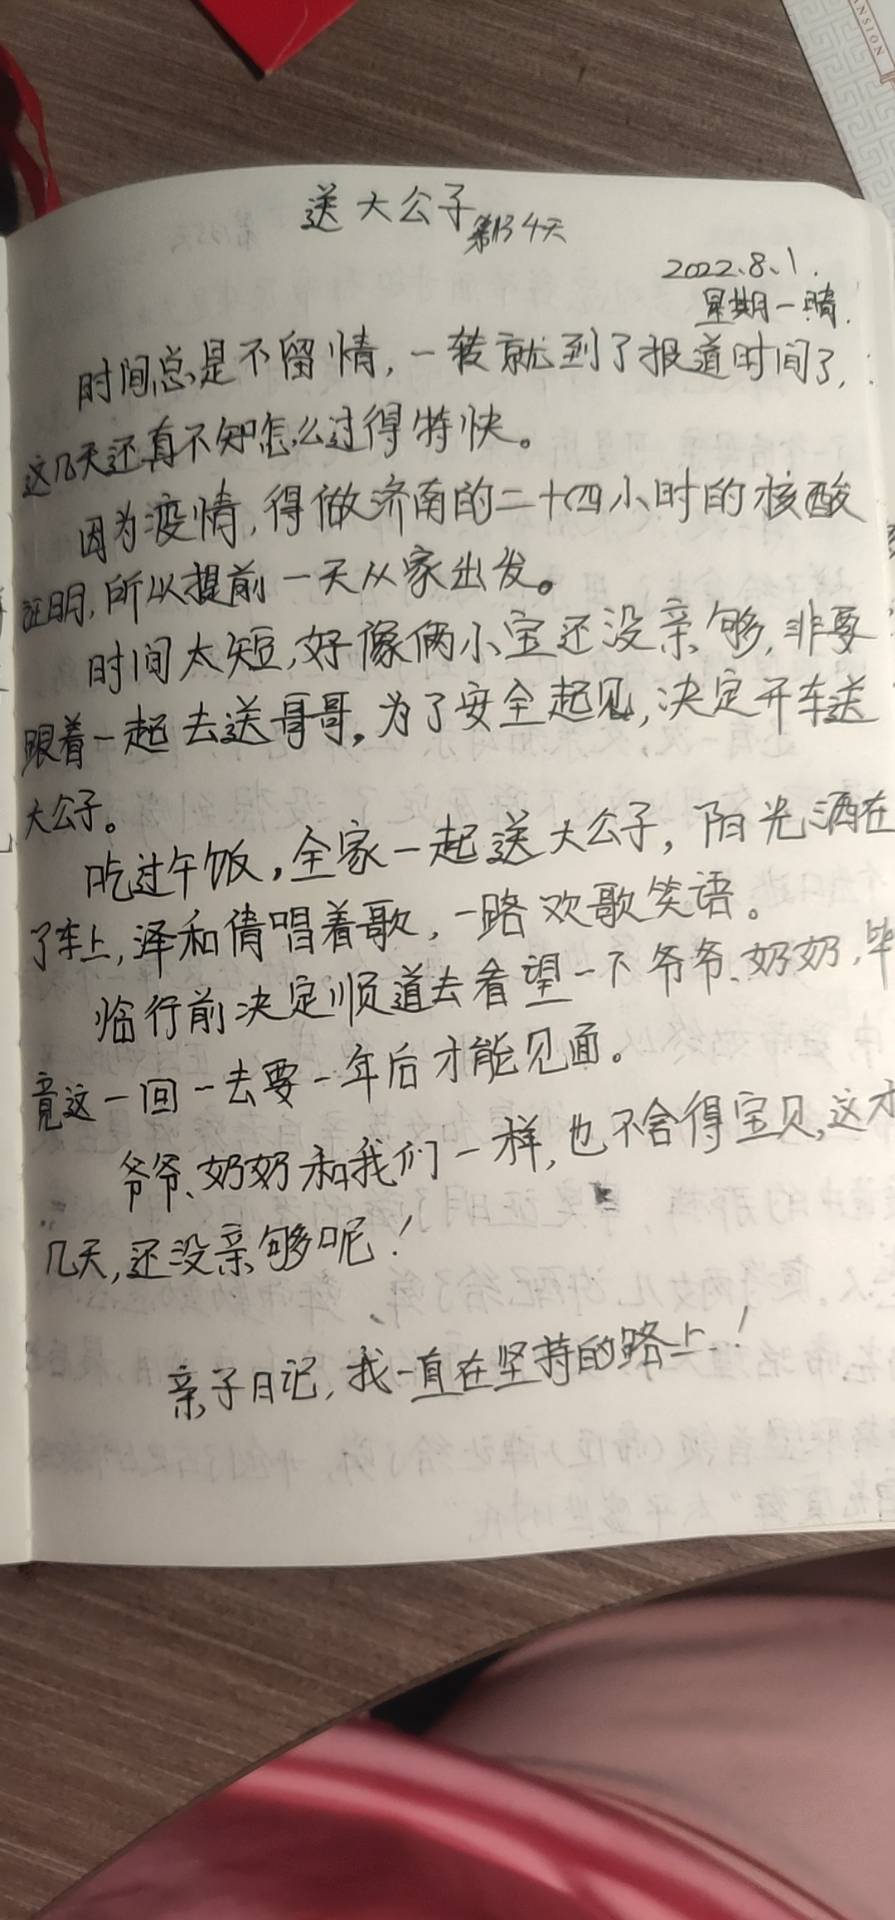 ANSION
送大公子
第134天
2022、8、1.
星期一晴.
时间总是不留情,一转就到了报道时间了,
这几天还真不知怎么过得特快。
因为疫情,得做济南的二十四小时的核酸
证明,所以提前一天从家出发。
时间太短,好像俩小宝还没亲够,非要
跟着一起去送哥哥。为了安全起见,决定开车送
大公子。
吃过午饭,全家一起送大公子,阳光洒在
了车上,泽和倩唱着歌,一路欢歌笑语。
临行前决定顺道去看望一下爷爷、奶奶,毕
竟这一回一去要一年后才能见面。
爷爷、奶奶和我们一样,也不舍得宝贝,这才
几天,还没亲够呢!
亲子日记,我一直在坚持的路上!